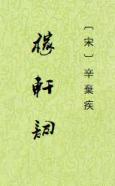 〔宋〕辛棄疾
稼軒詞